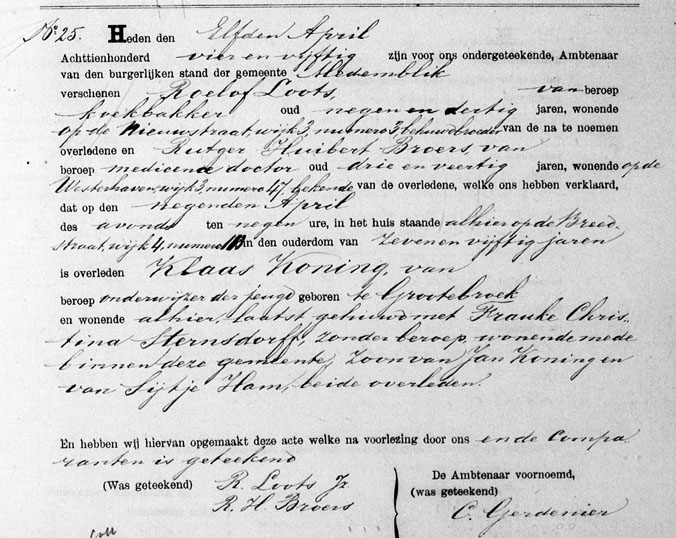 No. 25. Heden den Elfden April
Achttienhonderd vier en vijftig zijn voor ons ondergeteekende, Ambtenaar
van den burgerlijken stand der gemeente Medemblik
verschenen Roelof Loots, van beroep
koekbakker oud negen en dertig jaren, wonende
op de Nieuwstraat, wijk 3, numero 3, behuwdbroeder van de na te noemen
overledene en Rutger Huibert Broers, van
beroep medicenae doctor oud drie en veertig jaren, wonende op de
Westerhaven, wijk 3, numero 47, bekende van de overledene, welke ons hebben verklaard,
dat op den negenden April
des avonds ten negen ure, in het huis staande alhier op de Breed-
straat, wijk 4, numero in den ouderdom van zeven en vijftig jaren
is overleden Klaas Koning, van
beroep onderwijzer der jeugd geboren te Grootebroek
en wonende alhier, laatst gehuwd met Frauke Chris-
tina Sternsdorff, zonder beroep, wonende mede
binnen deze gemeente, Zoon van Jan Koning en
van Sijtje Ham, beide overleden.
En hebben wij hiervan opgemaakt deze acte welke na voorlezing door ons en de Compa-
ranten is geteekend
(Was geteekend) R. Loots Jz
R. H. Broers
De Ambtenaar voornoemd,
(was geteekend)
C. Gerdenier